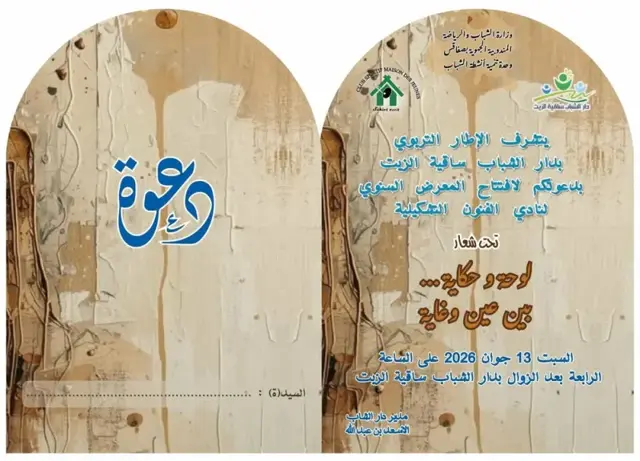 دعوة
السيد(ة) :
وزارة الشباب والرياضة
المندوبية الجهوية بصفاقس
وحدة تنمية أنشطة الشباب
CLUB MAISON DES JEUNES
دار الشباب ساقية الزيت
يتشرف الإطار التربوي
بدار الشباب ساقية الزيت
بدعوتكم لافتتاح المعرض السنوي
لنادي الفنون التشكيلية
تحت شعار
لوحة و حكاية ...
بين عين وغاية
السبت 13 جوان 2026 على الساعة
الرابعة بعد الزوال بدار الشباب ساقية الزيت
مدير دار الشباب
الأسعد بن عبدالله